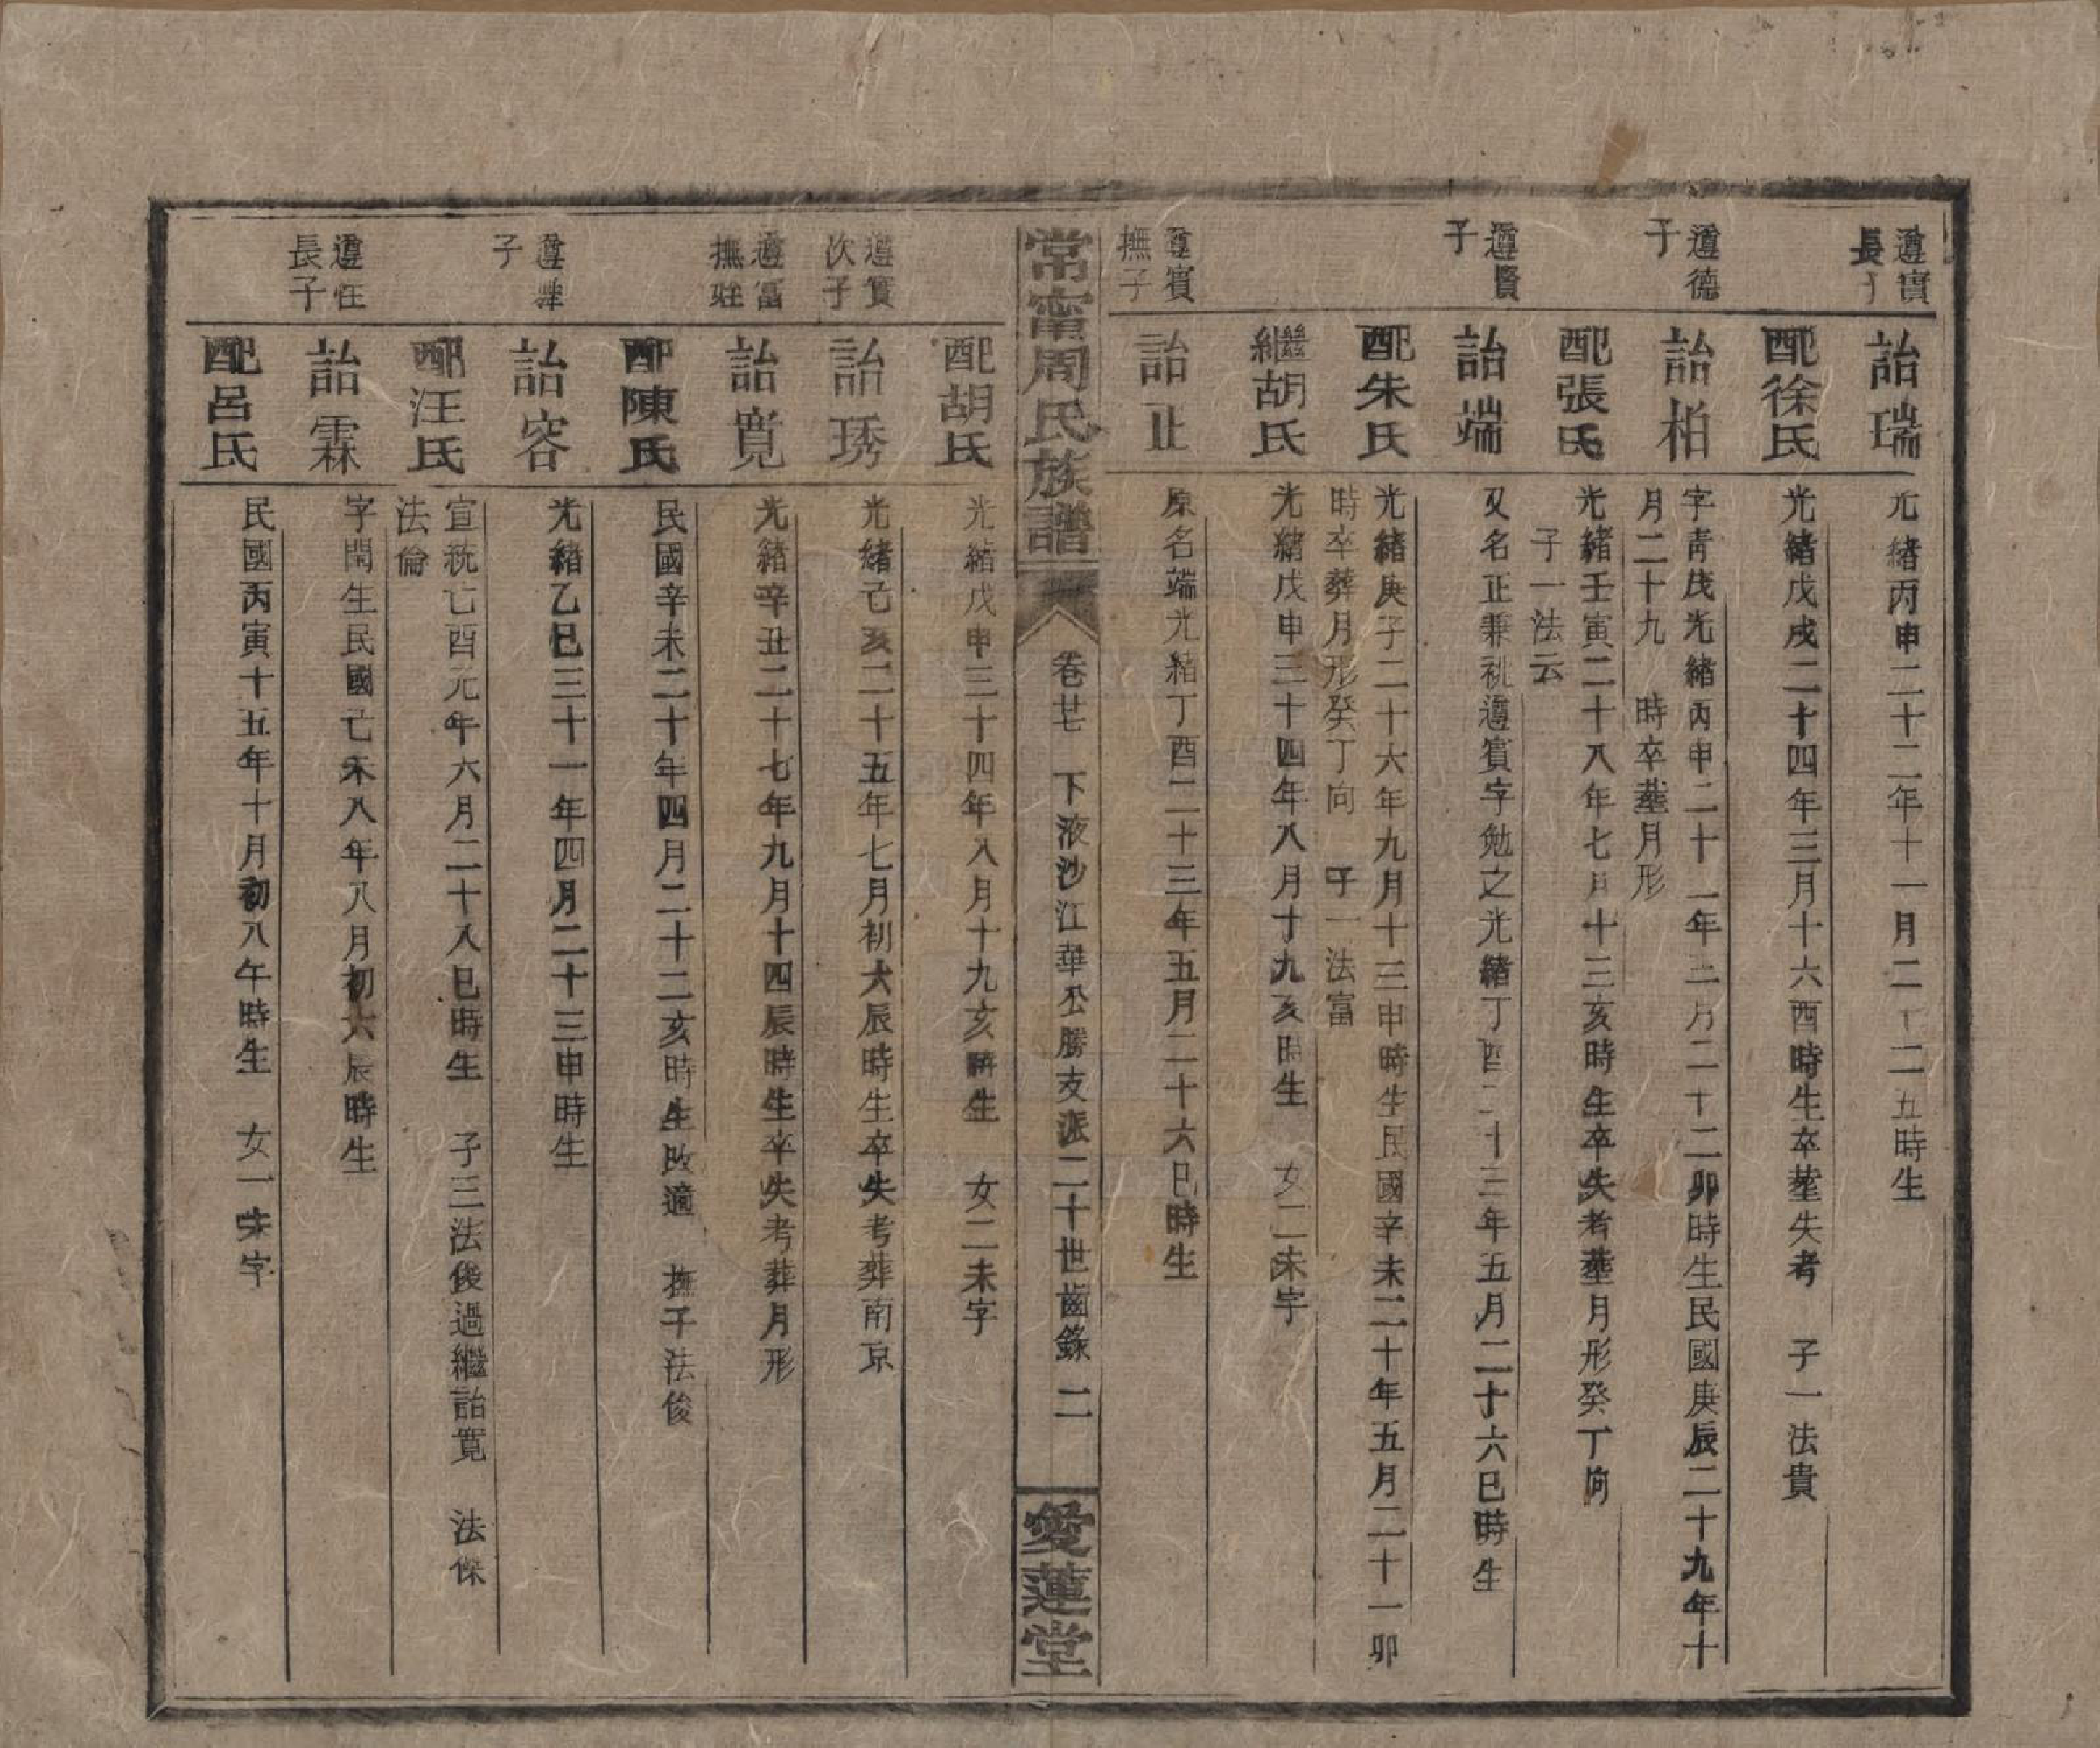 遵實
長子
詒瑞
光緒丙申二十二年十一月二十二五時生
配徐氏
光緒戊戌二十四年三月十六酉時生卒塟失考 子一法貴
遵德
子
詒柏
字青茂光緒丙申二十二年二月二十二卯時生民國庚辰二十九年十
月二十九 時卒塟月形
配張氏
光緒壬寅二十八年七月十三亥時生卒失考塟月形癸丁向
子一法云
遵賢
子
詒端
又名正兼祧遵賓字勉之光緒丁酉二十三年五月二十六巳時生
配朱氏
光緒庚子二十六年九月十三申時生民國辛未二十年五月二十一卯
時卒葬月形癸丁向 子一法富
繼胡氏
光緒戊申三十四年八月十九亥時生 女二未字
遵賓
撫子
詒正
原名端光緒丁酉二十三年五月二十六巳時生
常甯周氏族譜
卷廿 下液沙江華公勝支派二十世齒錄 二
愛蓮堂
配胡氏
光緒戊申三十四年八月十九亥時生 女二未字
遵實
次子
詒琇
光緒己亥二十五年七月初六辰時生卒失考葬南京
遵富
撫
詒寬
光緒辛丑二十七年九月十四辰時生卒失考葬月形
配陳氏
民國辛未二十年四月二十二亥時生改適 撫子法俊
遵
子
詒容
光緒乙巳三十一年四月二十三申時生
配汪氏
宣統己酉元年六月二十八巳時生 子三法俊過繼詒寬 法傑
法倫
遵任
長子
詒霖
字閏生民國己未八年八月初六辰時生
配呂氏
民國丙寅十五年十月初八午時生 女一未字